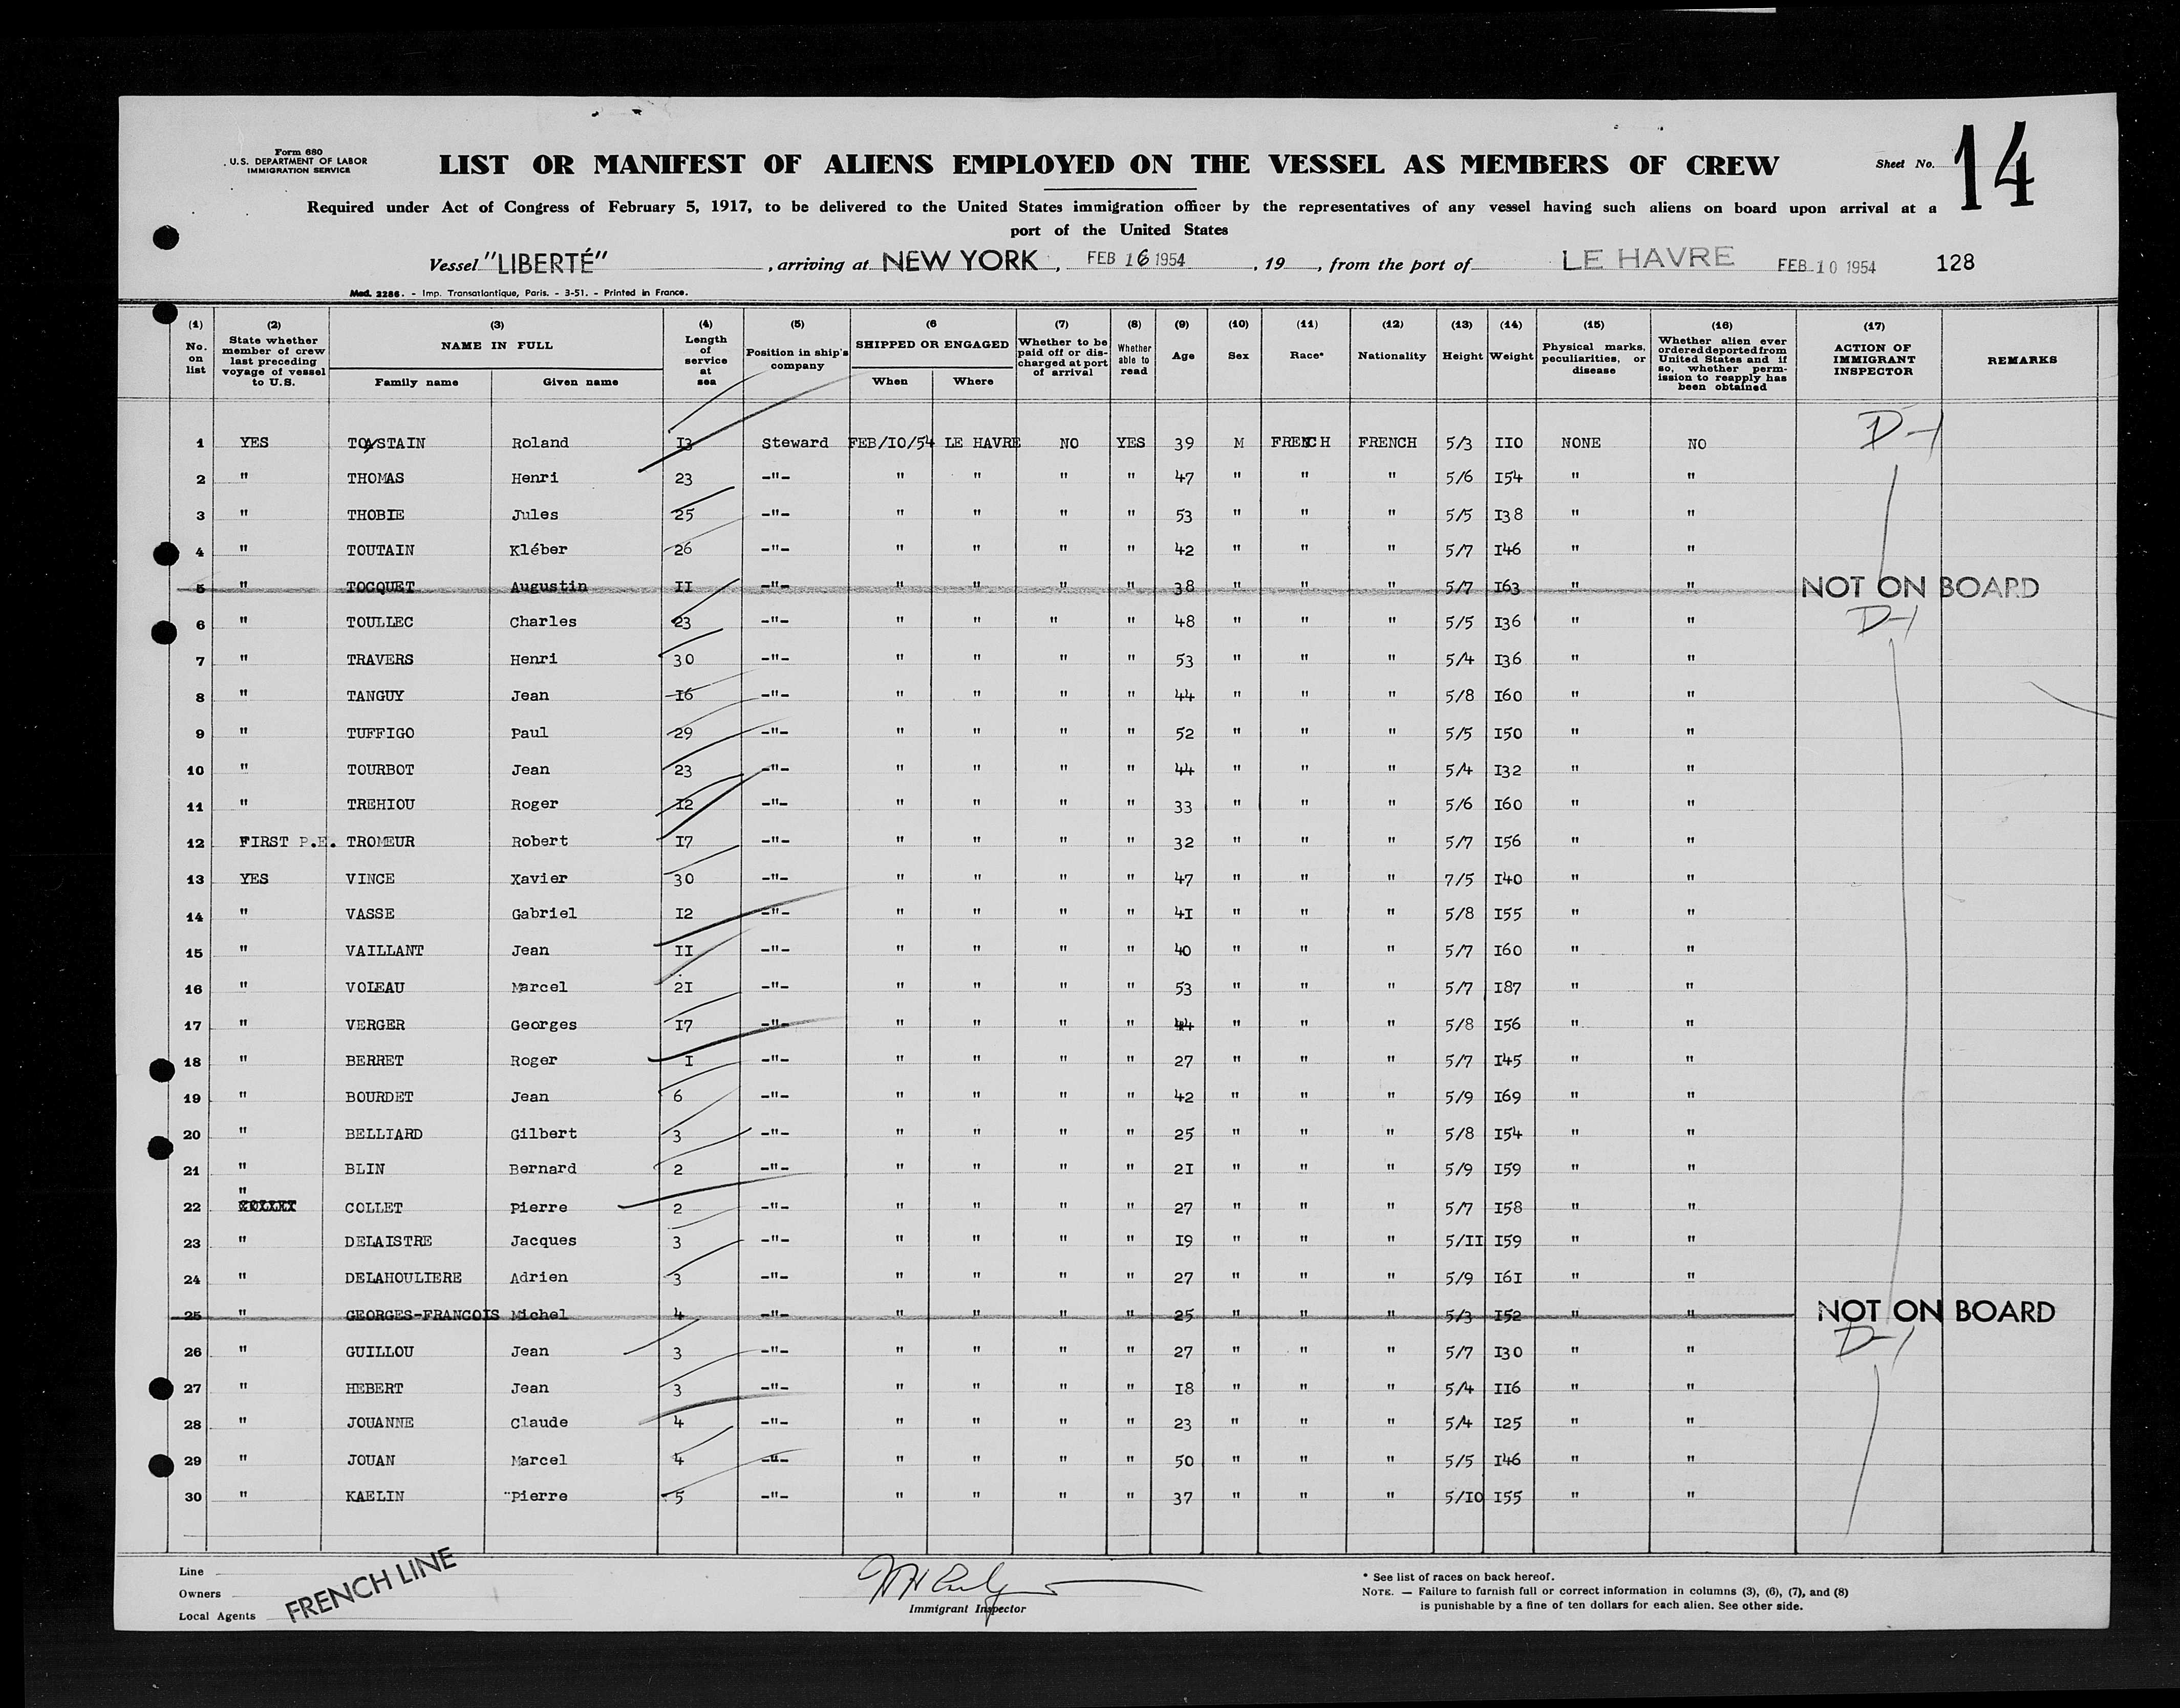 Form 680
U.S. DEPARTMENT OF LABOR
IMMIGRATION SERVICE
LIST OR MANIFEST OF ALIENS EMPLOYED ON THE VESSEL AS MEMBERS OF CREW
Sheet No. 14
Required under Act of Congress of February 5, 1917, to be delivered to the United States immigration officer by the representatives of any vessel having such aliens on board upon arrival at a
port of the United States
Vessel "LIBERTÉ", arriving at NEW YORK, FEB 16 1954, 19, from the port of LE HAVRE FEB 10 1954 128
Mod. 2286. - Imp. Transatlantique, Paris. - 3-51. - Printed in France.
(1) No. on list (2) State whether member of crew last preceding voyage of vessel to U.S. (3) NAME IN FULL Family name Given name (4) Length of service at sea (5) Position in ship's company (6 SHIPPED OR ENGAGED When Where (7) Whether to be paid off or discharged at port of arrival (8) Whether able to read (9) Age (10) Sex (11) Race* (12) Nationality (13) Height (14) Weight (15) Physical marks, peculiarities, or disease (16) Whether alien ever ordered deported from United States and if so, whether permission to reapply has been obtained (17) ACTION OF IMMIGRANT INSPECTOR REMARKS
1 YES TOASTAIN Roland I3 Steward FEB/IO/54 LE HAVRE NO YES 39 M FRENCH FRENCH 5/3 IIO NONE NO D-1
2 " THOMAS Henri 23 -"- " " " " 47 " " " 5/6 I54 " "
3 " THOBIE Jules 25 -"- " " " " 53 " " " 5/5 I38 " "
4 " TOUTAIN Kléber 26 -"- " " " " 42 " " " 5/7 I46 " "
5 " TOCQUET Augustin II -"- " " " " 38 " " " 5/7 I63 " " NOT ON BOARD
6 " TOULLEC Charles 23 -"- " " " " 48 " " " 5/5 I36 " " D-1
7 " TRAVERS Henri 30 -"- " " " " 53 " " " 5/4 I36 " "
8 " TANGUY Jean I6 -"- " " " " 44 " " " 5/8 I60 " "
9 " TUFFIGO Paul 29 -"- " " " " 52 " " " 5/5 I50 " "
10 " TOURBOT Jean 23 -"- " " " " 44 " " " 5/4 I32 " "
11 " TREHIOU Roger I2 -"- " " " " 33 " " " 5/6 I60 " "
12 FIRST P.E. TROMEUR Robert I7 -"- " " " " 32 " " " 5/7 I56 " "
13 YES VINCE Xavier 30 -"- " " " " 47 " " " 7/5 I40 " "
14 " VASSE Gabriel I2 -"- " " " " 4I " " " 5/8 I55 " "
15 " VAILLANT Jean II -"- " " " " 40 " " " 5/7 I60 " "
16 " VOLEAU Marcel 2I -"- " " " " 53 " " " 5/7 I87 " "
17 " VERGER Georges I7 -"- " " " " 44 " " " 5/8 I56 " "
18 " BERRET Roger I -"- " " " " 27 " " " 5/7 I45 " "
19 " BOURDET Jean 6 -"- " " " " 42 " " " 5/9 I69 " "
20 " BELLIARD Gilbert 3 -"- " " " " 25 " " " 5/8 I54 " "
21 " BLIN Bernard 2 -"- " " " " 2I " " " 5/9 I59 " "
22 " COLLET Pierre 2 -"- " " " " 27 " " " 5/7 I58 " "
23 " DELAISTRE Jacques 3 -"- " " " " I9 " " " 5/II I59 " "
24 " DELAHOULIERE Adrien 3 -"- " " " " 27 " " " 5/9 I6I " "
25 " GEORGES-FRANCOIS Michel 4 -"- " " " " 25 " " " 5/3 I52 " " NOT ON BOARD
26 " GUILLOU Jean 3 -"- " " " " 27 " " " 5/7 I30 " " D-1
27 " HEBERT Jean 3 -"- " " " " I8 " " " 5/4 II6 " "
28 " JOUANNE Claude 4 -"- " " " " 23 " " " 5/4 I25 " "
29 " JOUAN Marcel 4 -"- " " " " 50 " " " 5/5 I46 " "
30 " KAELIN Pierre 5 -"- " " " " 37 " " " 5/IO I55 " "
Line
Owners
Local Agents
FRENCH LINE
Immigrant Inspector
* See list of races on back hereof.
NOTE. — Failure to furnish full or correct information in columns (3), (6), (7), and (8)
is punishable by a fine of ten dollars for each alien. See other side.